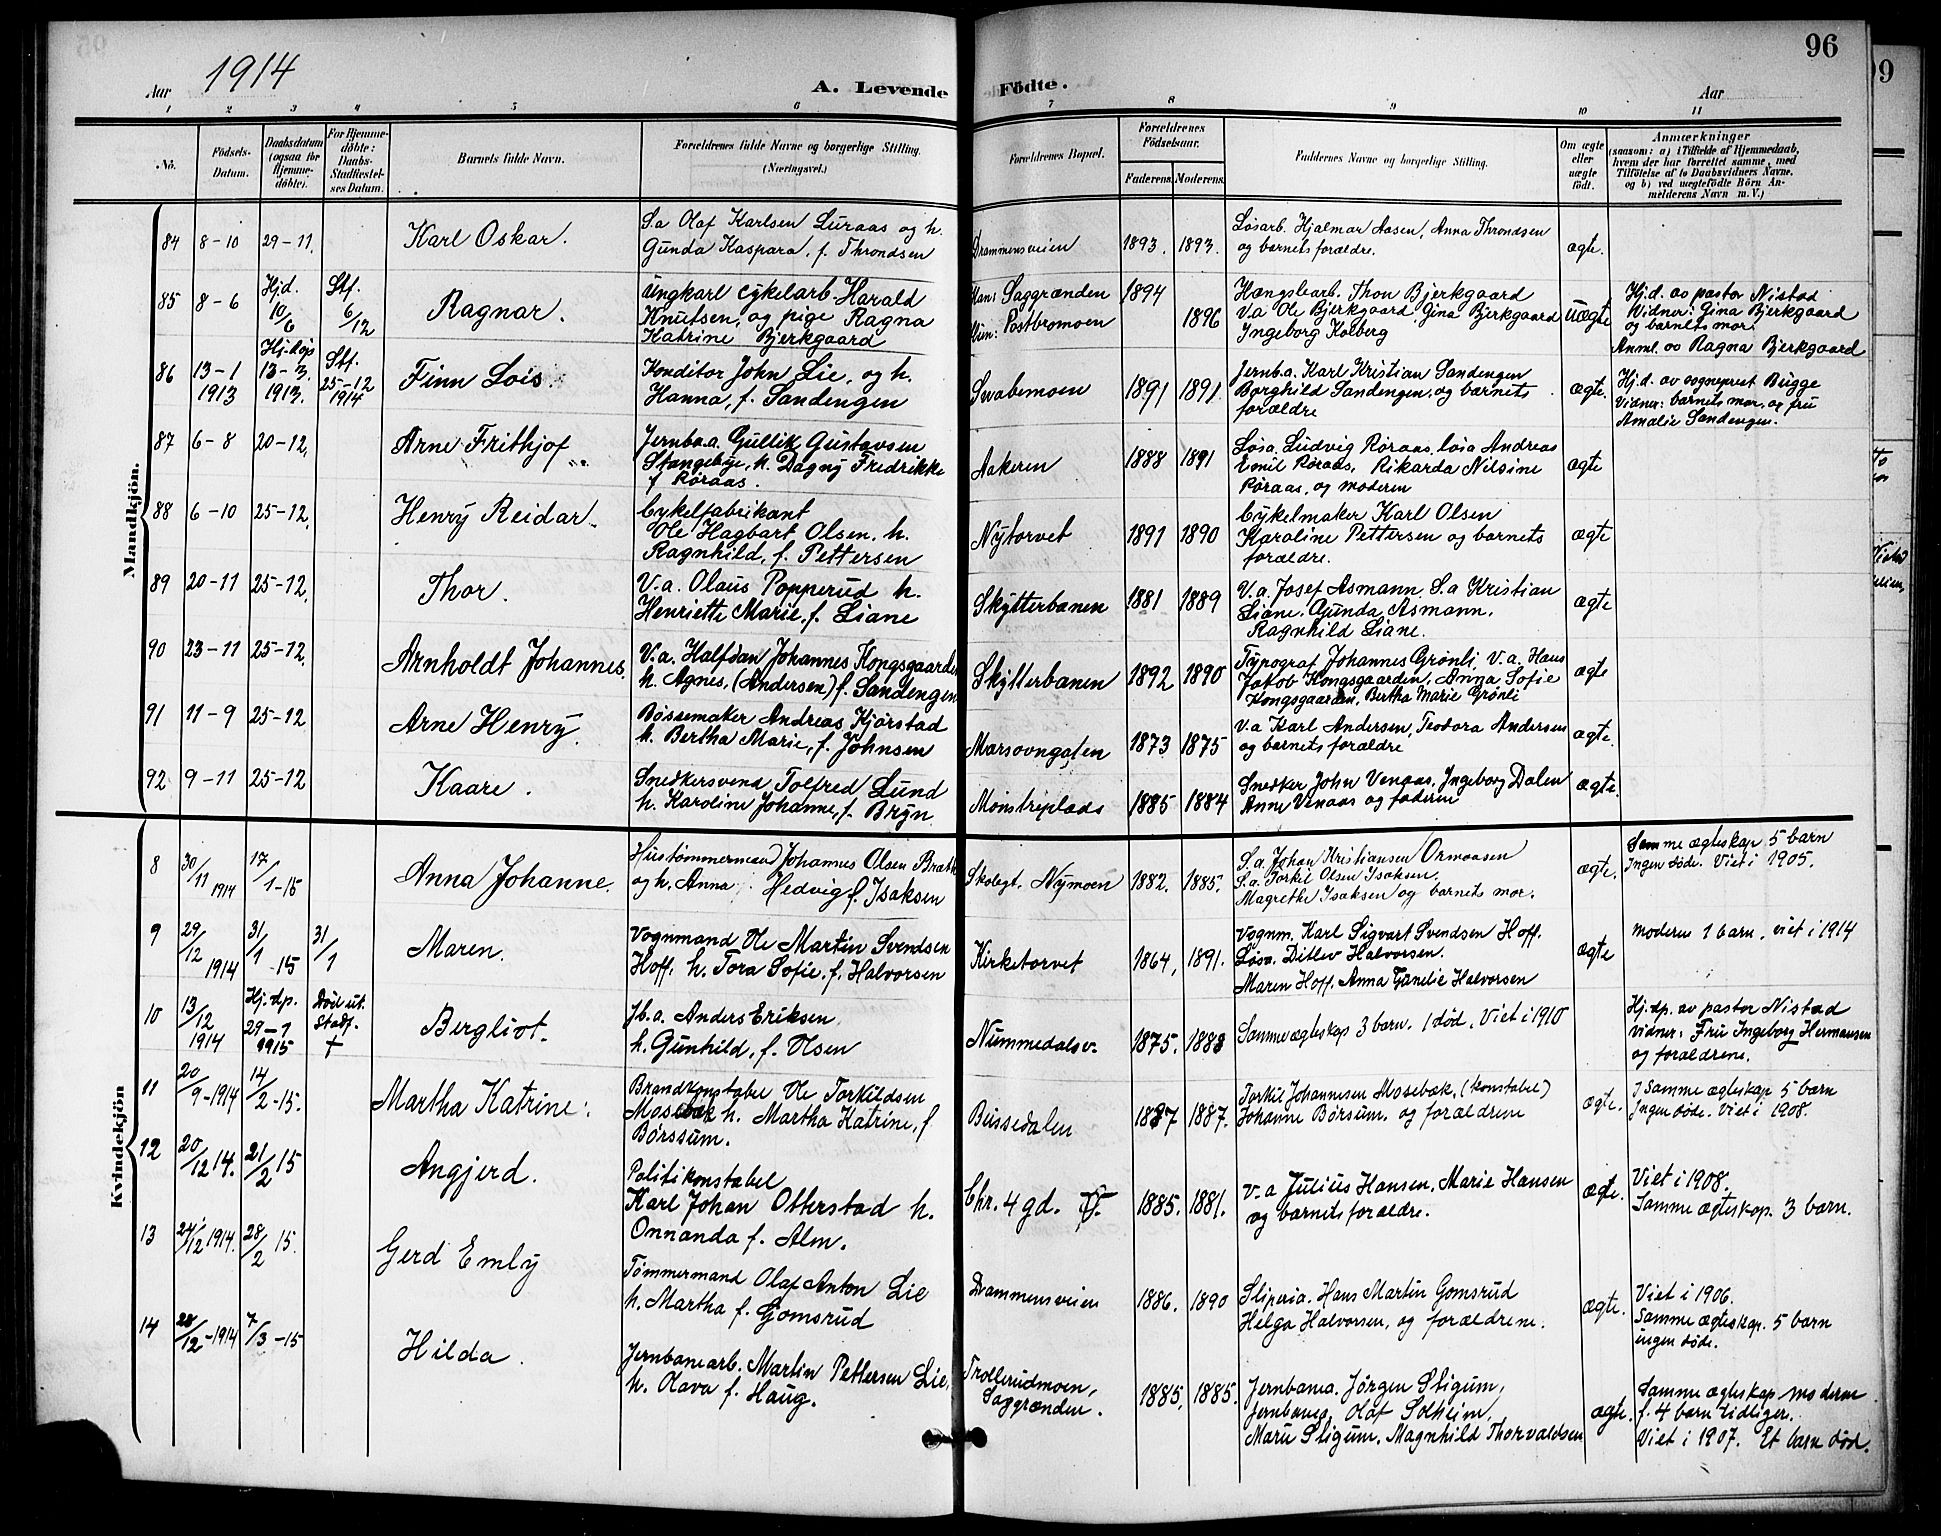 96
1914
Aar
A. Levende Födte.
Aar
1 2 3 4 5 6 7 8 9 10 11
No.
Födsels-Datum.
Daabsdatum (ogsaa for Hjemmedöbte).
For Hjemmedöbte: Daabs-Stadfæstelses Datum.
Barnets fulde Navn.
Forældrenes fulde Navne og borgerlige Stilling. (Næringsvei.)
Forældrenes Bopæl.
Forældrenes Födselsaar.
Faderens. Moderens.
Faddernes Navne og borgerlige Stilling.
Om ægte eller uægte födt.
Anmærkninger
(saasom: a) i Tilfælde af Hjemmedaab, hvem der har forrettet samme, med Tilföielse af to Daabsvidners Navne, og b) ved uægtefödte Börn Anmelderens Navn m. V.)
Mandkjön.
84 8-10 29-11. Karl Oskar. S.a Olaf Karlsen Luraas og h.
Gunda Kaspara, f. Throndsen
Drammensveien 1893. 1893. Løsarb. Hjalmar Aasen, Anna Throndsen
og barnets forældre. ægte.
85 8-6 Hj.d. 10/6 Stf. 6/12 Ragnar. Ungkarl cykelarb. Harald
Knutsen, og pige Ragna
Katrine Bjerkgaard
Han: Saggrænden 1894
Hun: Postbromoen 1896
Hængslearb. Thon Bjerkgaard
V.a Ole Bjerkgaard Gina Bjerkgaard
Ingeborg Kolberg
uægte
Hj.d. av pastor Nistad
Vidner: Gina Bjerkgaard
og barnets mor.
Anml. av Ragna Bjerkgaard
86 13-1 1913 Hj.døp 13-3. 1913. Stf. 25-12 1914 Finn Lois. Konditor John Lie, og h.
Hanna, f. Sandengen
Svabemoen 1891 1891. Jernb.a. Karl Kristian Sandengen
Borghild Sandengen, og barnets
forældre
ægte.
Hj.d. av sogneprest Bugge
Vidner: barnets mor, og fru
Amalie Sandengen.
87 6-8 20-12. Arne Frithjof Jernb.a.a Gullik Gustavsen
Stangebye, h. Dagny Fredrikke
f Røraas.
Aakeren 1888 1891 Løsa. Ludvig Røraas, løsa Andreas
Emil Røraas, Rikarda Nilsine
Røraas, og moderen
ægte
88 6-10 25-12. Henry Reidar. Cykelfabrikant
Ole Hagbart Olsen, h.
Ragnhild, f. Pettersen
Nytorvet 1891 1890 Cykelmaker Karl Olsen
Karoline Pettersen og barnets
forældre.
ægte
89 20-11 25-12. Thor. V.a. Olaus Popperud h.
Henriette Marie, f. Liane
Skytterbanen 1881 1889 V.a. Josef Asmann, S.a Kristian
Liane. Gunda Asmann.
Ragnhild Liane.
ægte
90 23-11 25-12. Arnholdt Johannes. V.a. Halfdan Johannes Kongsgaarden
h. Agnes, (Andersen) f. Sandengen
Skytterbanen 1892 1890 Typograf Johannes Grønli, V.a. Hans
Jakob Kongsgaarden, Anna Sofie
Kongsgaarden, Bertha Marie Grønli
ægte
91 11-9 25-12 Arne Henry. Bøssemaker Andreas Kjørstad
h. Bertha Marie, f. Johnsen
Marsovngaten 1873 1875 V.a Karl Andersen, Teodora Andersen
og barnets forældre
ægte.
92 9-11 25-12 Kaare. Snedkersvend Tolfred Lund
h. Karoline Johanne, f. Bryn.
Mønstreplads 1885 1884 Snedker John Venaas, Ingeborg Dalen
Anne Venaas og faderen
ægte.
Kvindekjön
8 30/11 1914 17/1-15 Anna Johanne. Hustømmermand Johannes Olsen Brath
og h. Anna Hedvig f. Isaksen
Skolegt. Nymoen 1882. 1885. S.a. Johan Kristiansen Ormaasen
S.a. Torkil Olsen Isaksen.
Magrethe Isaksen og barnets mor.
ægte.
Samme ægteskap 5 barn
Ingen døde. Viet i 1905.
9 29/12 1914 31/1-15 31/1 Maren. Vognmand Ole Martin Svendsen
Hoff, h. Tora Sofie, f. Halvorsen
Kirketorvet 1864, 1891. Vognm. Karl Sigvart Svendsen Hoff.
Løsa. Ditlev Halvorsen.
Maren Hoff, Anna Gunelie Halvorsen
ægte
moderen 1 barn, viet i 1914
10 13/12 1914 Hj.dp. 29-1 1915 Død ut. Stadf. † Bergliot. Jb.a. Anders Eriksen
h. Gunhild, f. Olsen
Nummedalsv. 1875. 1888 Samme ægteskap 3 barn. 1 død. Viet i 1910
Hj.dp. av pastor Nistad
vidner: Fru Ingeborg Hermansen
og forældrene.
11 20/9-1914 14/2-15. Martha Katrine. Brandkonstabel Ole Torkildsen
Mosebæk h. Martha Katrine, f
Børssum.
Bussedalen 1887 1887. Torkil Johannesen Mosebæk, (konstabel)
Johanne Børsum, og forældrene
ægte.
I Samme ægteskap 5 barn
Ingen døde. Viet i 1908.
12 20/12 14. 21/2 15 Angjerd. Politikonstabel
Karl Johan Otterstad h.
Onnanda f. Alm.
Chr. 4 gd. 1885. 1881. V.a Julius Hansen, Marie Hansen
og barnets forældre.
ægte.
Viet i 1908.
Samme ægteskap. 3 barn.
13 24/12 1914. 28/2 15. Gerd Emly Tømmermand Olaf Anton Lie
h. Martha f. Gomsrud
Drammensveien 1886. 1890 Sliperia. Hans Martin Gomsrud
Helga Halvorsen, og forældrene.
ægte.
Viet i 1906.
Samme ægteskap. 5 barn
ingen døde.
14 28/12-1914 7/3-15 Hilda. Jernbanearb. Martin Pettersen Lie,
h. Olava f. Haug.
Trollerudmoen,
Saggrænden.
1885, 1885. Jernbanea. Jørgen Stigum,
Jernbanea. Olaf Solheim,
Marie Stigum, Magnhild Thorvaldsen
ægte.
Samme ægteskap moderen
f. 4 barn tidliger.
Viet i 1907. Et barn død.